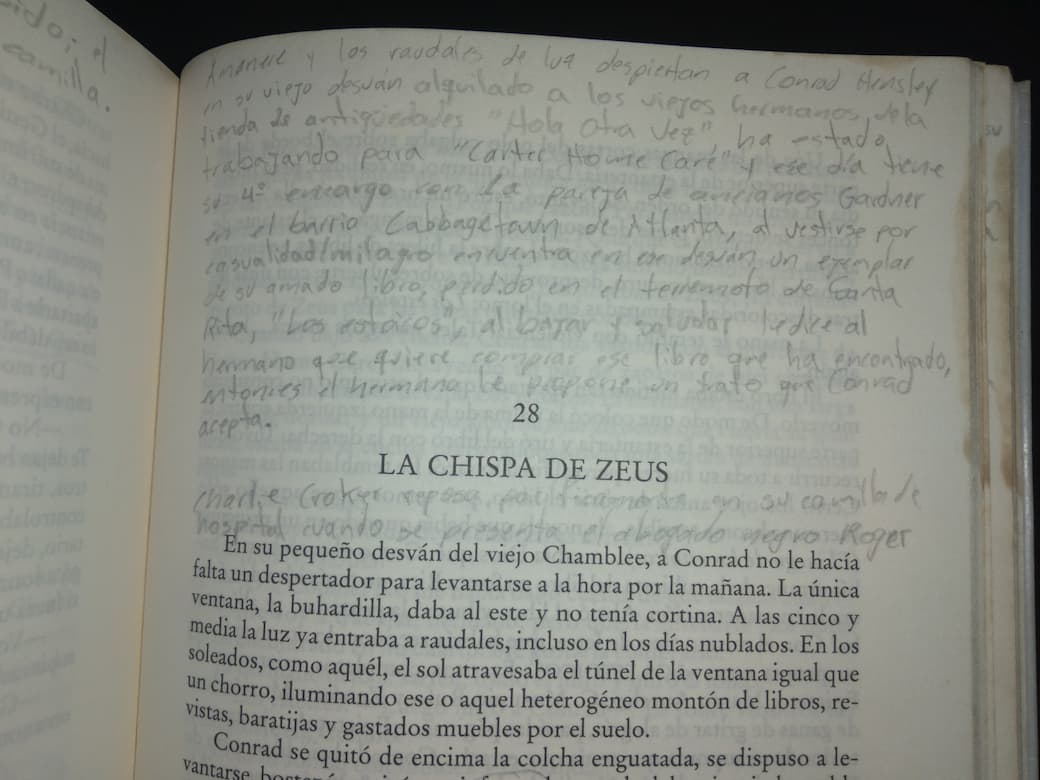 sido; el
camilla.
Amanece y los raudales de luz despiertan a Conrad Hensley
en su viejo desván alquilado a los viejos hermanos de la
tienda de antigüedades "Hola Otra Vez", ha estado
trabajando para "Carter Home Care" y ese día tiene
su 4º encargo con la pareja de ancianos Gardner
en el barrio Cabbagetown de Atlanta, al vestirse por
casualidad/milagro encuentra en ese desván un ejemplar
de su amado libro perdido en el terremoto de Santa
Rita, "Los estoicos", al bajar y saludar le dice al
hermano que quiere comprar ese libro que ha encontrado,
entonces el hermano le propone un trato que Conrad
acepta.
28
LA CHISPA DE ZEUS
Charlie Croker reposa en su camilla de
hospital cuando se presenta el abogado negro Roger
En su pequeño desván del viejo Chamblee, a Conrad no le hacía
falta un despertador para levantarse a la hora por la mañana. La única
ventana, la buhardilla, daba al este y no tenía cortina. A las cinco y
media la luz ya entraba a raudales, incluso en los días nublados. En los
soleados, como aquél, el sol atravesaba el túnel de la ventana igual que
un chorro, iluminando ese o aquel heterogéneo montón de libros, re-
vistas, baratijas y gastados muebles por el suelo.
Conrad se quitó de encima la colcha enguatada, se dispuso a le-
vantarse,